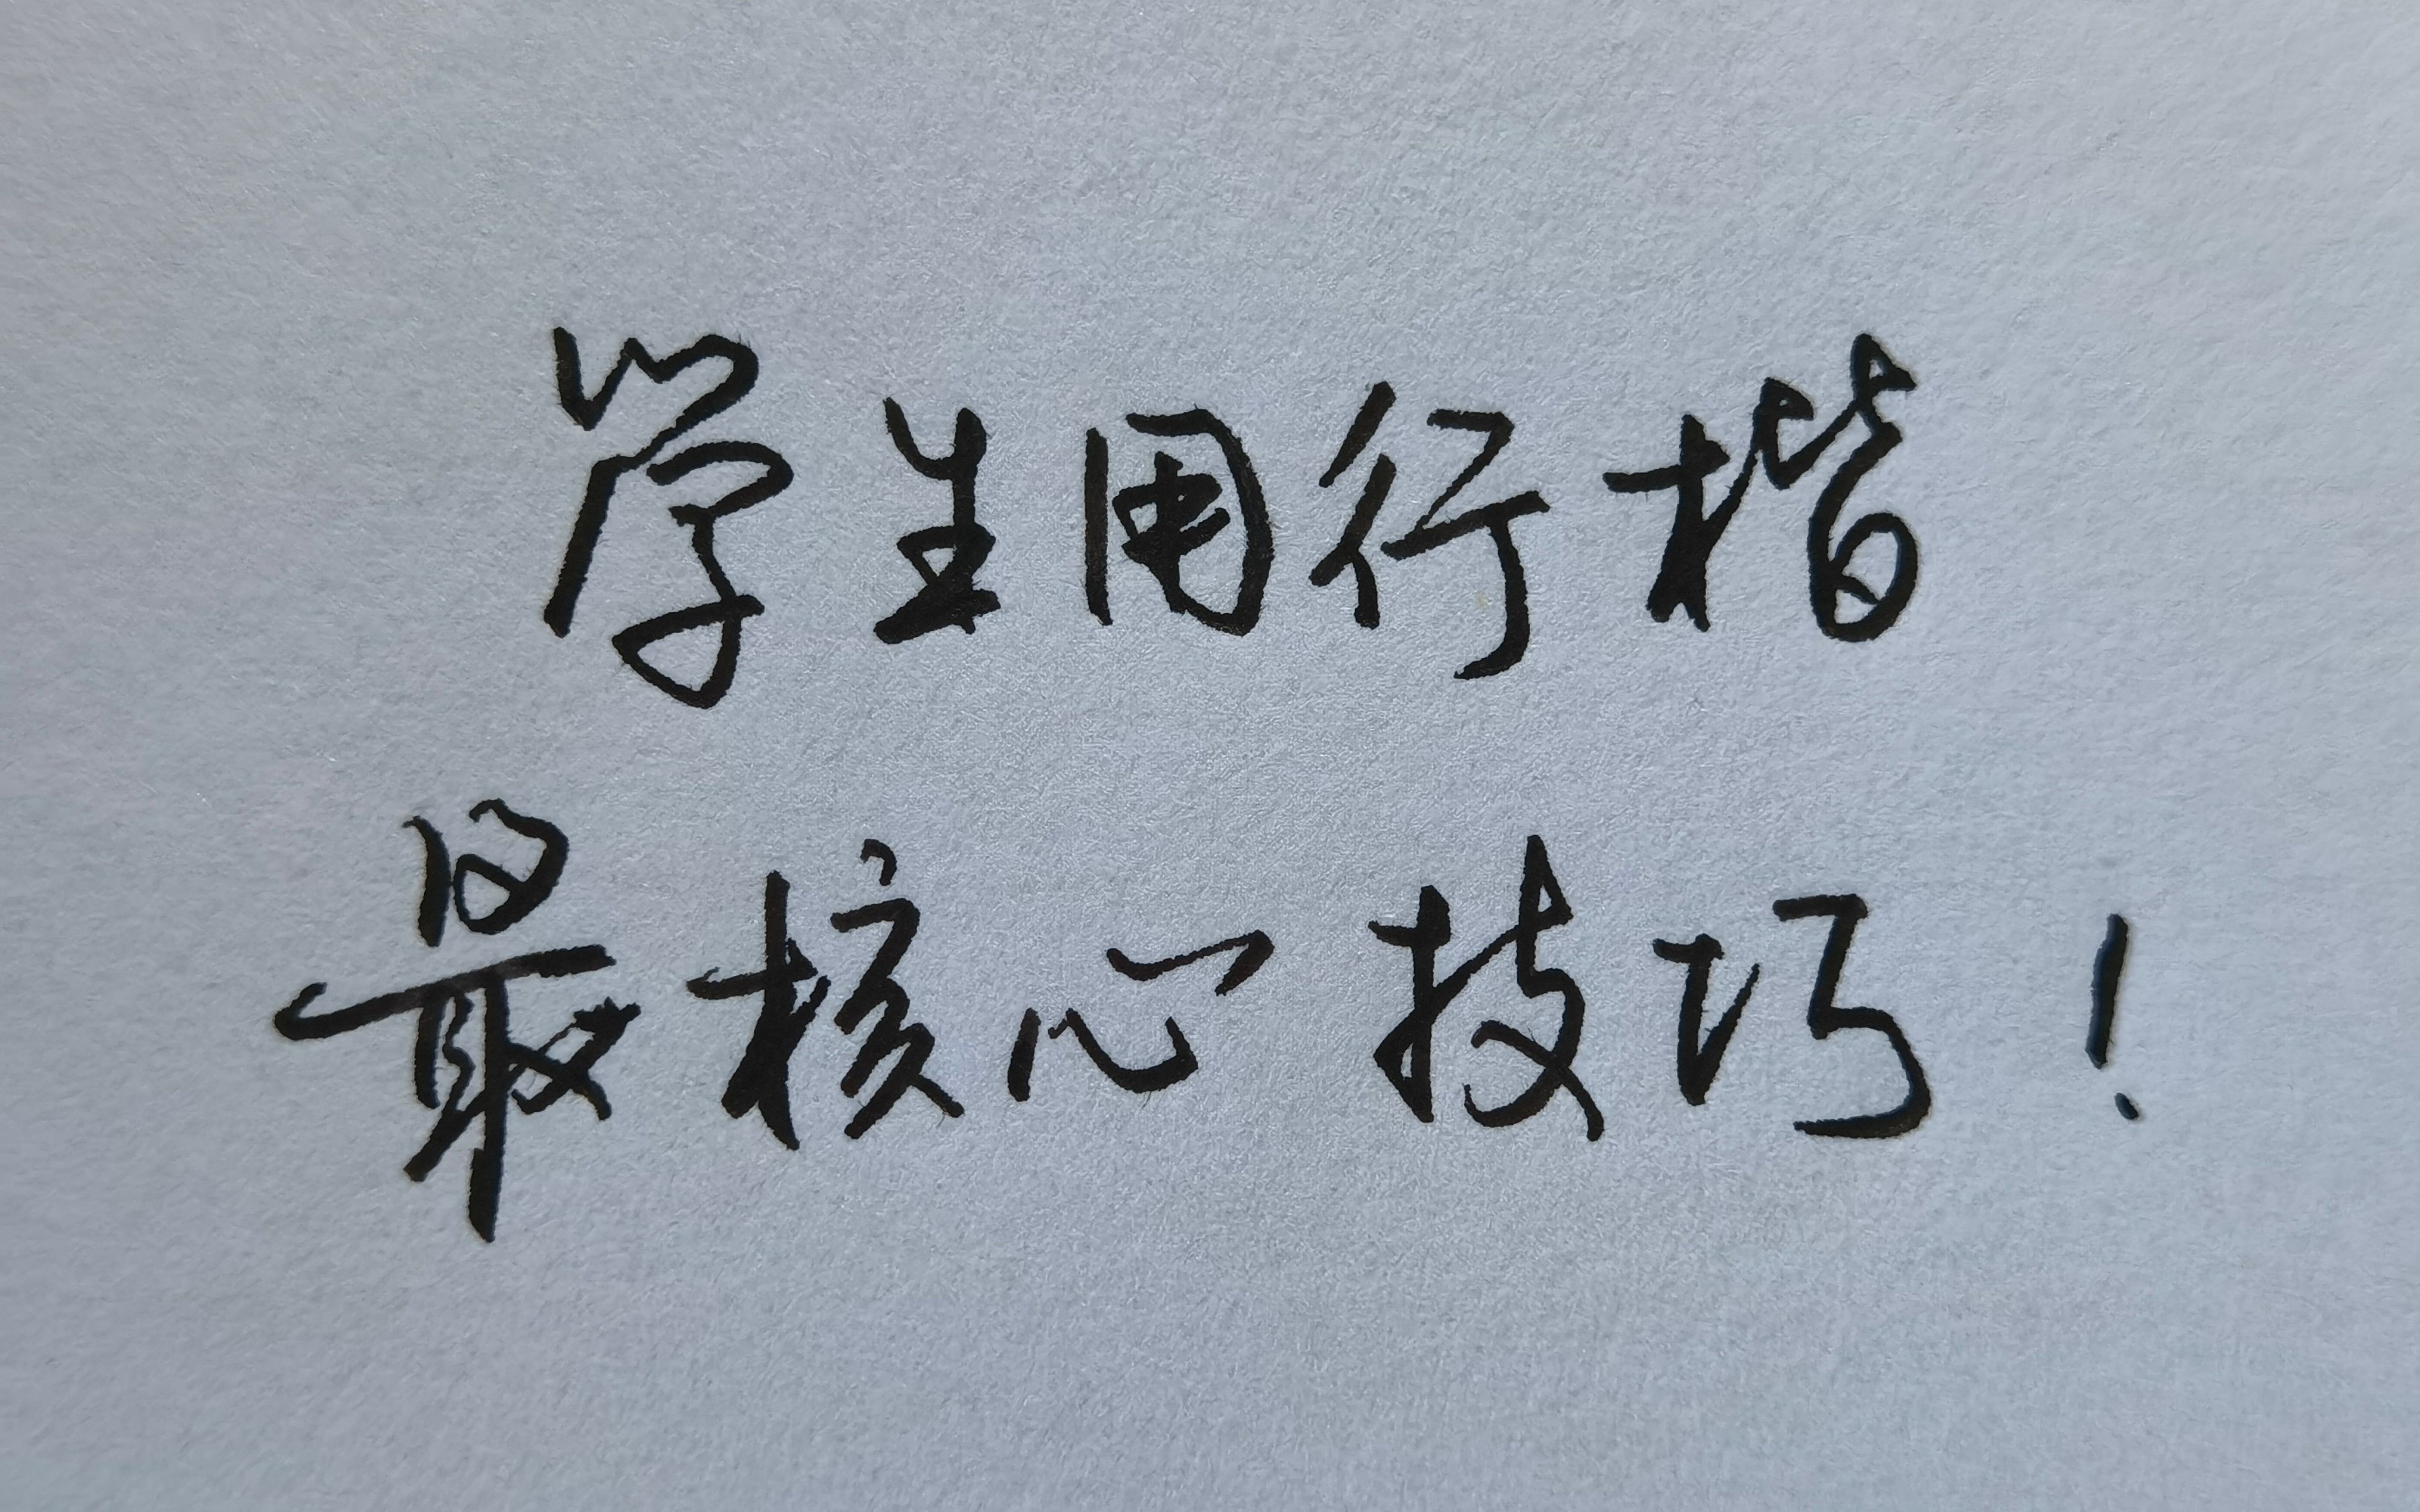 学生用行楷
最核心技巧！